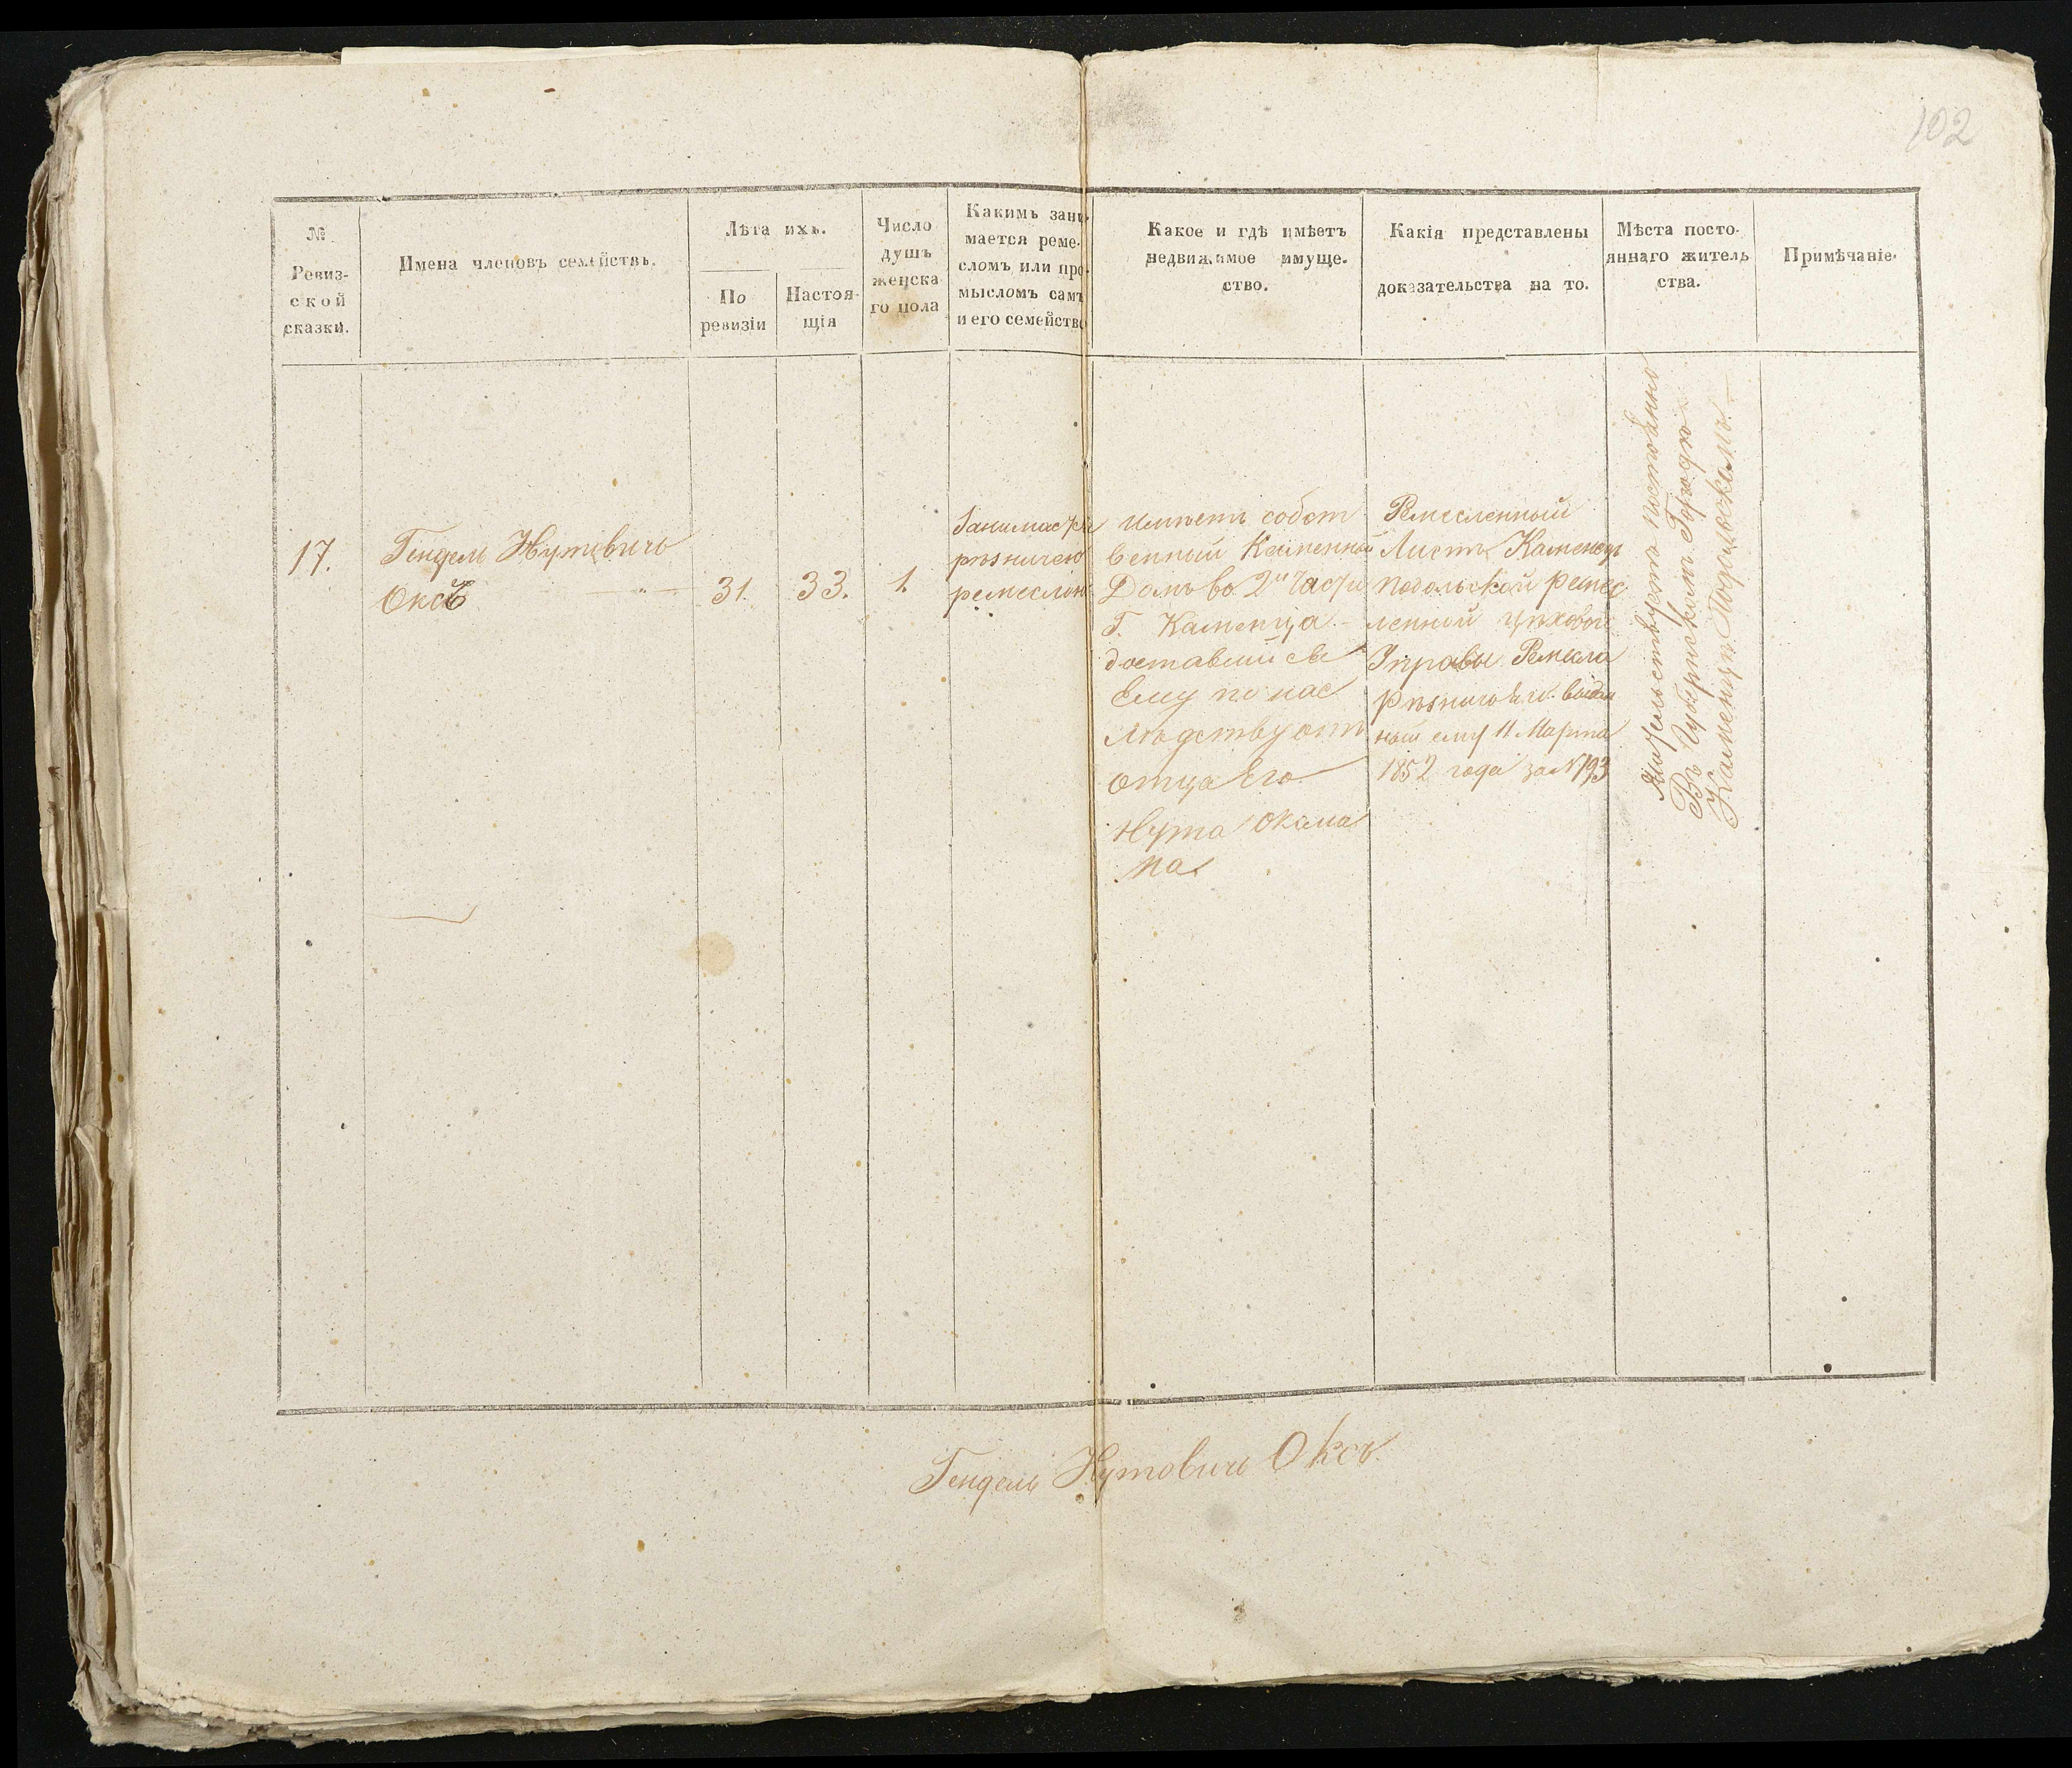 102
№
Ревиз-
ской
сказки.
Имена членовъ семействъ.
Лѣта ихъ.
По
ревизіи
Настоя-
щія
Число
душъ
женска
го пола
Какимъ зани-
мается реме-
сломъ или про-
мысломъ самъ
и его семейство
Какое и гдѣ имѣетъ
недвижимое имуще-
ство.
Какія представлены
доказательства на то.
Мѣста посто-
яннаго житель
ства.
Примѣчаніе.
17.
Гендель Нутовичъ
Оксъ
31.
33.
1.
Занимается
рѣзничею
ремеслом
имѣетъ собст
венный Каменный
Домъ во 2й Части
Г. Каменца
доставшійся
Ему по нас
лѣдству отъ
отца Его
Нута Оксма
на
Ремесленный
Листъ Каменец
Подольской ремес
ленной цѣховой
Управы Ремесла
Рѣзничаго выдан
ный ему 11 Марта
1852 года за №793
Жительствуетъ постоянно
Въ Губернскомъ Городѣ
Каменцѣ Подольскомъ.
Гендель Нутовичъ Оксъ.